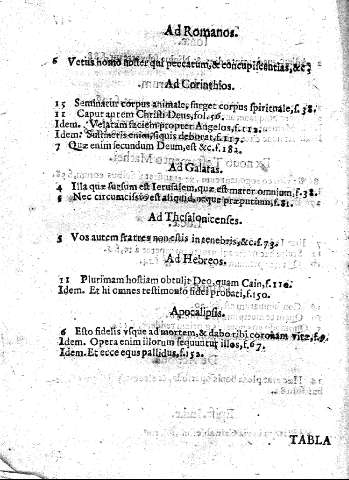 Ad Romanos.
6 Vetus homo noster qui peccatum, & concupiscentias, &c
Ad Corinthios.
15 Seminatur corpus animale, surget corpus spirituale, f. 38.
11 Caput autem Christi Deus, fol. 56.
Idem. Velatam faciem propter Angelos, f. 112.
Idem. Sustineris enim, siquis debirat, f. 117.
7 Quæ enim secundum Deum, est &c. f. 182.
Ad Galatas.
4 Illa quæ sursum est Ierusalem, quæ est mater omnium, f. 38.
5 Nec circumcissio est aliquid, neque præputium, f. 81.
Ad Thesalonicenses.
5 Vos autem fratres non estis in tenebris, &c. f. 73.
Ad Hebreos.
11 Plurimam hostiam obtulit Deo, quam Cain, f. 110.
Idem. Et hi omnes testimonio fidei probati, f. 150.
Apocalipsis.
6 Esto fidelis vsque ad mortem, & dabo tibi coronam vitæ, f. 9.
Idem. Opera enim illorum sequuntur illos, f. 67.
Idem. Et ecce equs pallidus, f. 152.
TABLA